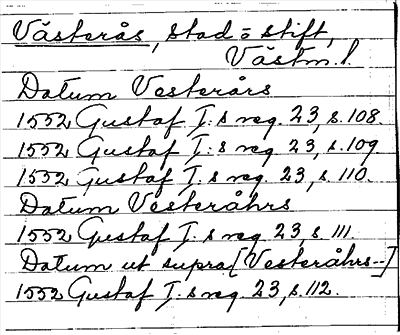 Västerås, stad o stift,
Västm. l.
Datum Vesterårs
1552 Gustaf I:s reg. 23, s. 108.
1552 Gustaf I:s reg. 23, s. 109
1552 Gustaf I:s reg. 23, s. 110.
Datum Vesteråhrs
1552 Gustaf I:s reg. 23, s. 111
Datum ut supra [Vesteråhrs--]
1552 Gustaf I:s reg. 23, s. 112.